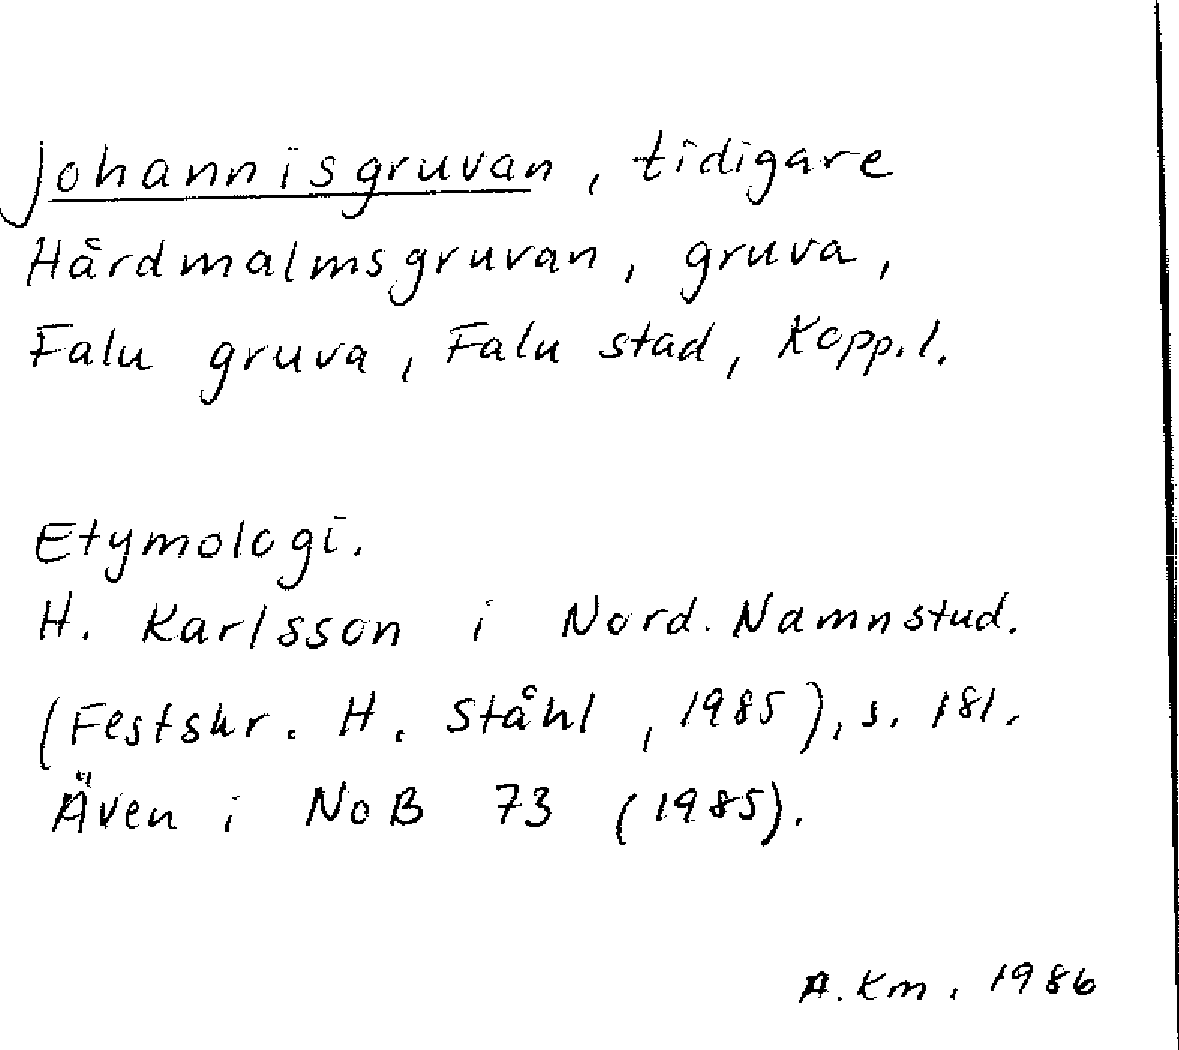 Johannisgruvan, tidigare
Hårdmalmsgruvan, gruva,
Falu gruva, Falu stad, Kopp.l.
Etymologi.
H. Karlsson i Nord. Namnstud.
(Festskr. H. Ståhl, 1985), s. 181.
Även i NoB 73 (1985).
A. Km. 1986